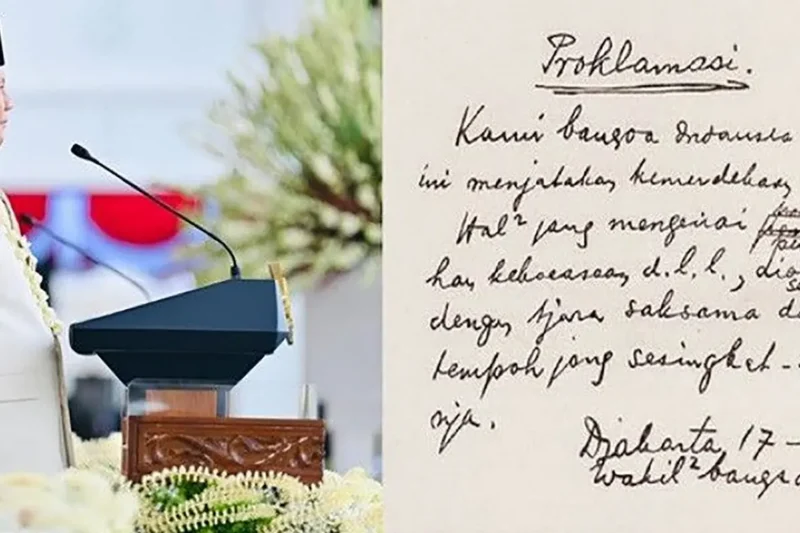 Proklamasi.
Kami bangsa Indonesia
ini menjatakan kemerdekaan
Hal² jang mengenai
kan kekoeasaan d.l.l.,
dengan tjara saksama
tempoh jang sesingkat-
nja.
Djakarta 17 -
Wakil² bangsa